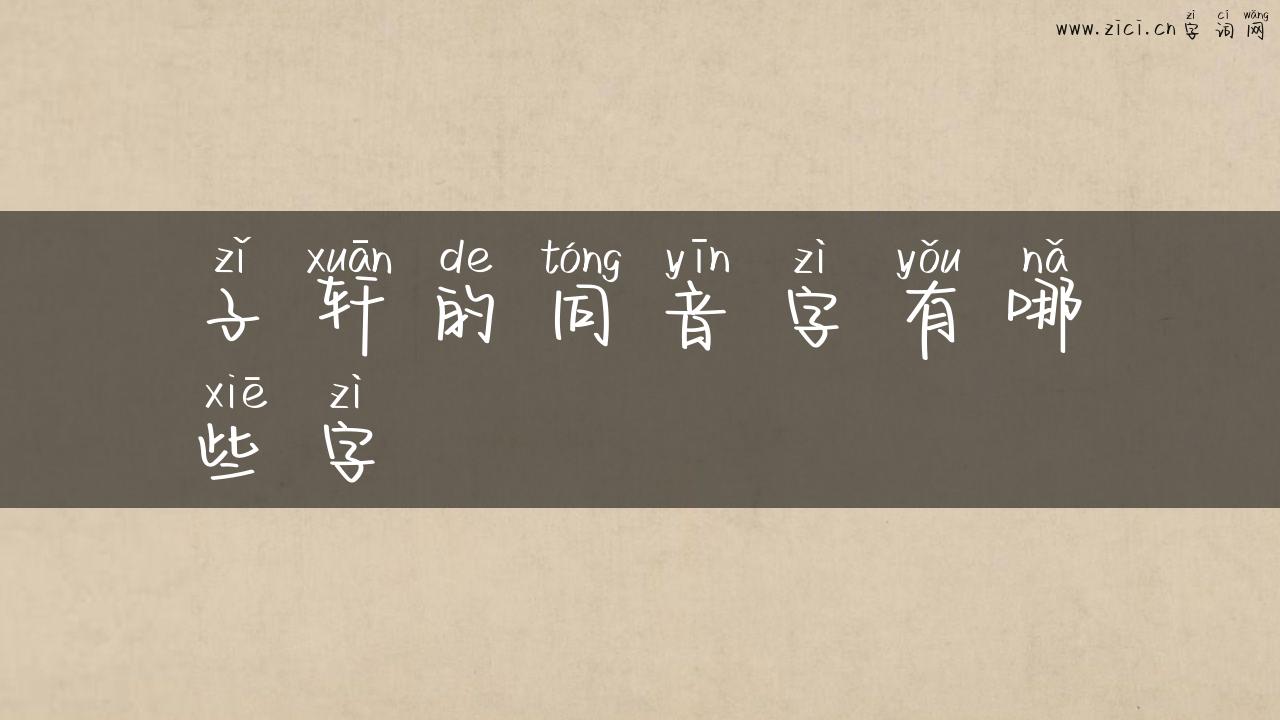 zì cí wǎng
www.zici.cn 字 词 网
zǐ xuān de tóng yīn zì yǒu nǎ
子 轩 的 同 音 字 有 哪
xiē zì
些 字